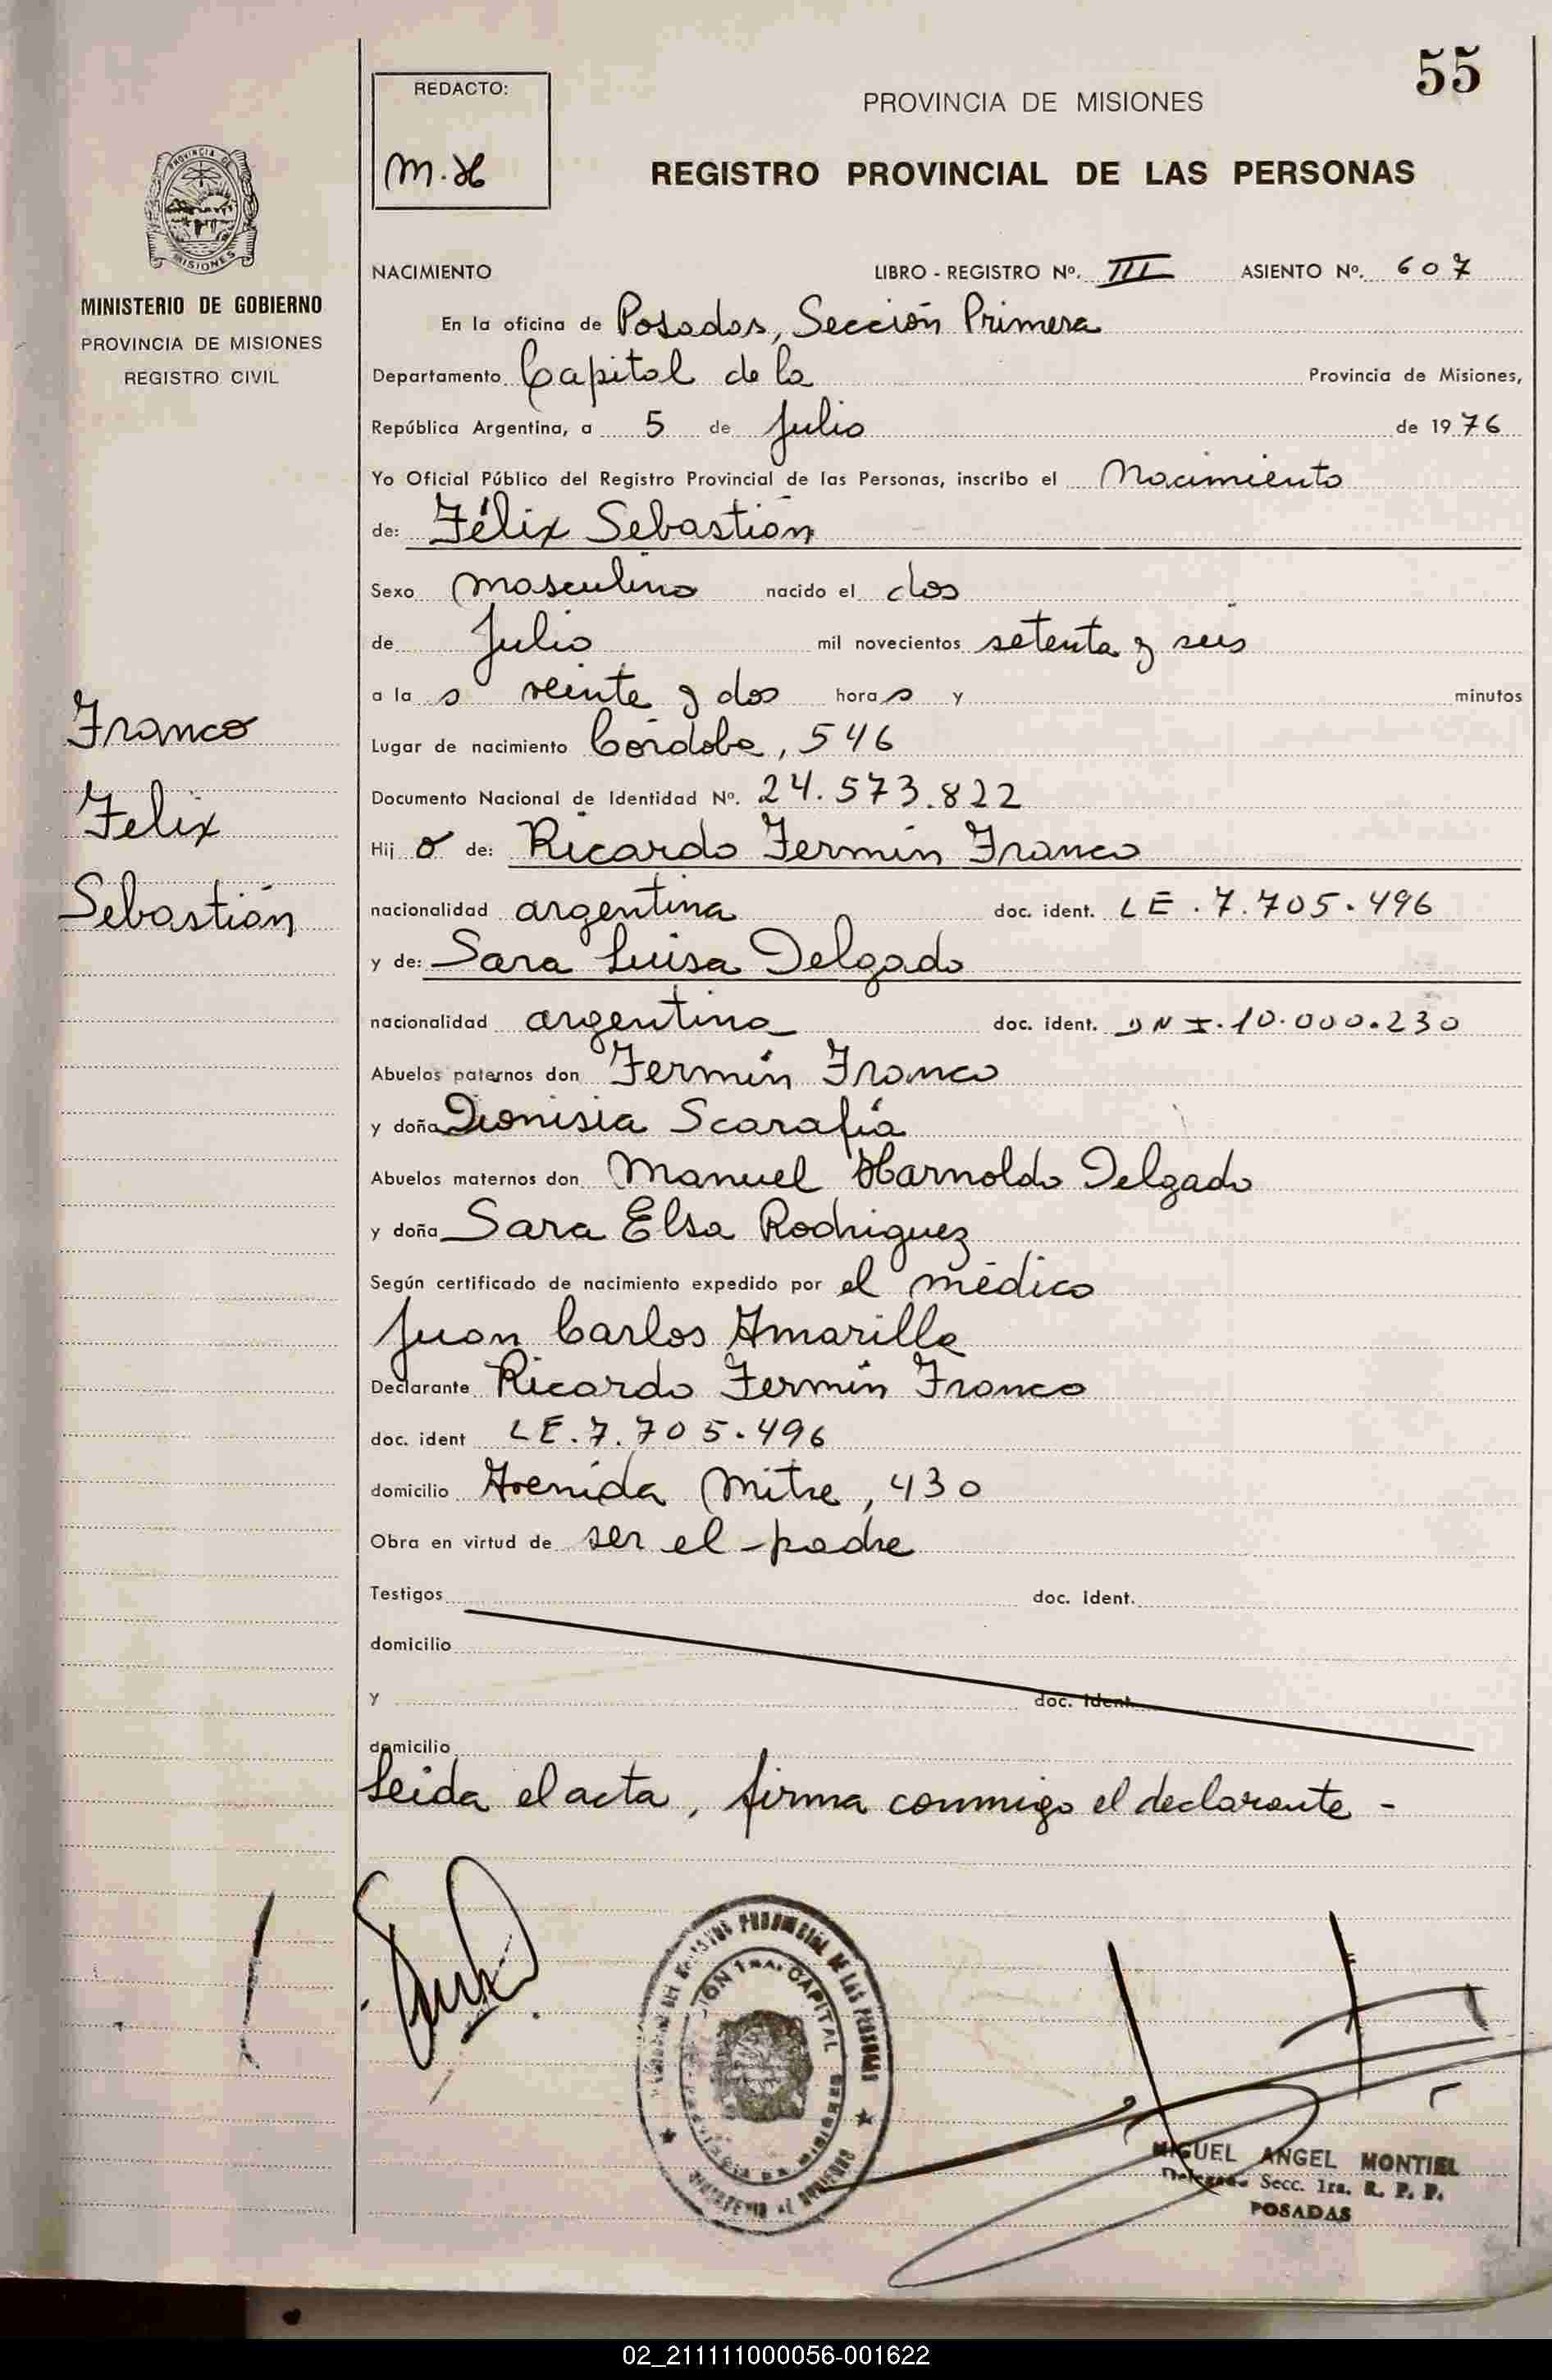 55
REDACTO:
M.H
PROVINCIA DE MISIONES
REGISTRO PROVINCIAL DE LAS PERSONAS
PROVINCIA DE
MISIONES
MINISTERIO DE GOBIERNO
PROVINCIA DE MISIONES
REGISTRO CIVIL
NACIMIENTO LIBRO - REGISTRO Nº. III ASIENTO Nº. 607
En la oficina de Posadas, Sección Primera
Departamento Capital de la Provincia de Misiones,
República Argentina, a 5 de Julio de 1976
Yo Oficial Público del Registro Provincial de las Personas, inscribo el Nacimiento
de: Félix Sebastián
Sexo masculino nacido el dos
de Julio mil novecientos setenta y seis
a las veinte y dos horas y minutos
Lugar de nacimiento Córdoba, 546
Documento Nacional de Identidad Nº. 24.573.822
Hijo de: Ricardo Fermín Franco
nacionalidad argentina doc. ident. LE.7.705.496
y de: Sara Luisa Delgado
nacionalidad argentina doc. ident. DNI.10.000.230
Abuelos paternos don Fermín Franco
y doña Dionisia Scarafía
Abuelos maternos don Manuel Harnoldo Delgado
y doña Sara Elsa Rodriguez
Según certificado de nacimiento expedido por el médico
Juan Carlos Amarilla
Declarante Ricardo Fermín Franco
doc. ident LE.7.705.496
domicilio Avenida Mitre, 430
Obra en virtud de ser el padre
Testigos doc. ident.
domicilio
y doc. ident.
domicilio
Leida el acta, firma conmigo el declarante -
Franco
Felix
Sebastián
PROVINCIAL DE LAS PERSONAS
1RA. CAPITAL
MIGUEL ANGEL MONTIEL
Delegado Secc. 1ra. R. P. P.
POSADAS
02_211111000056-001622